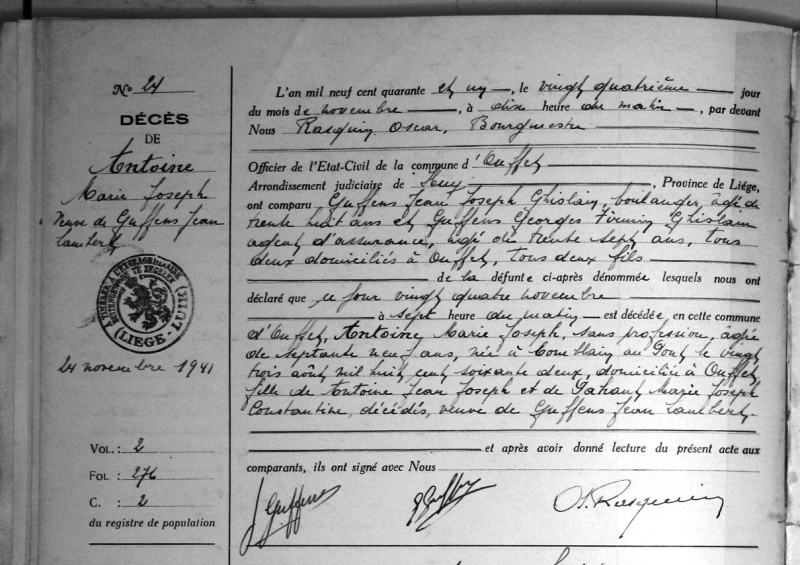 No 24
DÉCÈS
DE
Antoine
Marie Joseph
Veuve de Guffens Jean
Lambert
LUIK LIEGE
24 novembre 1941
VOL. : 2
FOL. : 276
C. : 2
du registre de population
L'an mil neuf cent quarante et un, le vingt quatrième jour
du mois de novembre, à dix heure du matin, par devant
Nous Rasquin, Oscar, Bourgmestre
Officier de l'Etat-Civil de la commune d'Ouffet
Arrondissement judiciaire de Huy, Province de Liége,
ont comparu Guffens Jean Joseph Ghislain, boulanger, âgé de
trente huit ans et Guffens Georges Firmin Ghislain
agent d'assurance, âgé de trente sept ans, tous
deux domiciliés à Ouffet, tous deux fils
de la défunte ci-après dénommée lesquels nous ont
déclaré que ce jour vingt quatre novembre
à sept heure du matin est décédée, en cette commune
d'Ouffet, Antoine Marie Joseph, sans profession, âgée
de septante neuf ans, née à Comblain au Pont le vingt
trois août mil huit cent soixante deux, domiciliée à Ouffet,
fille de Antoine Jean Joseph et de Marie Joseph
Constantine, décédés, veuve de Guffens Jean Lambert.
et après avoir donné lecture du présent acte aux
comparants, ils ont signé avec Nous
J Guffens
G Guffens
O. Rasquin